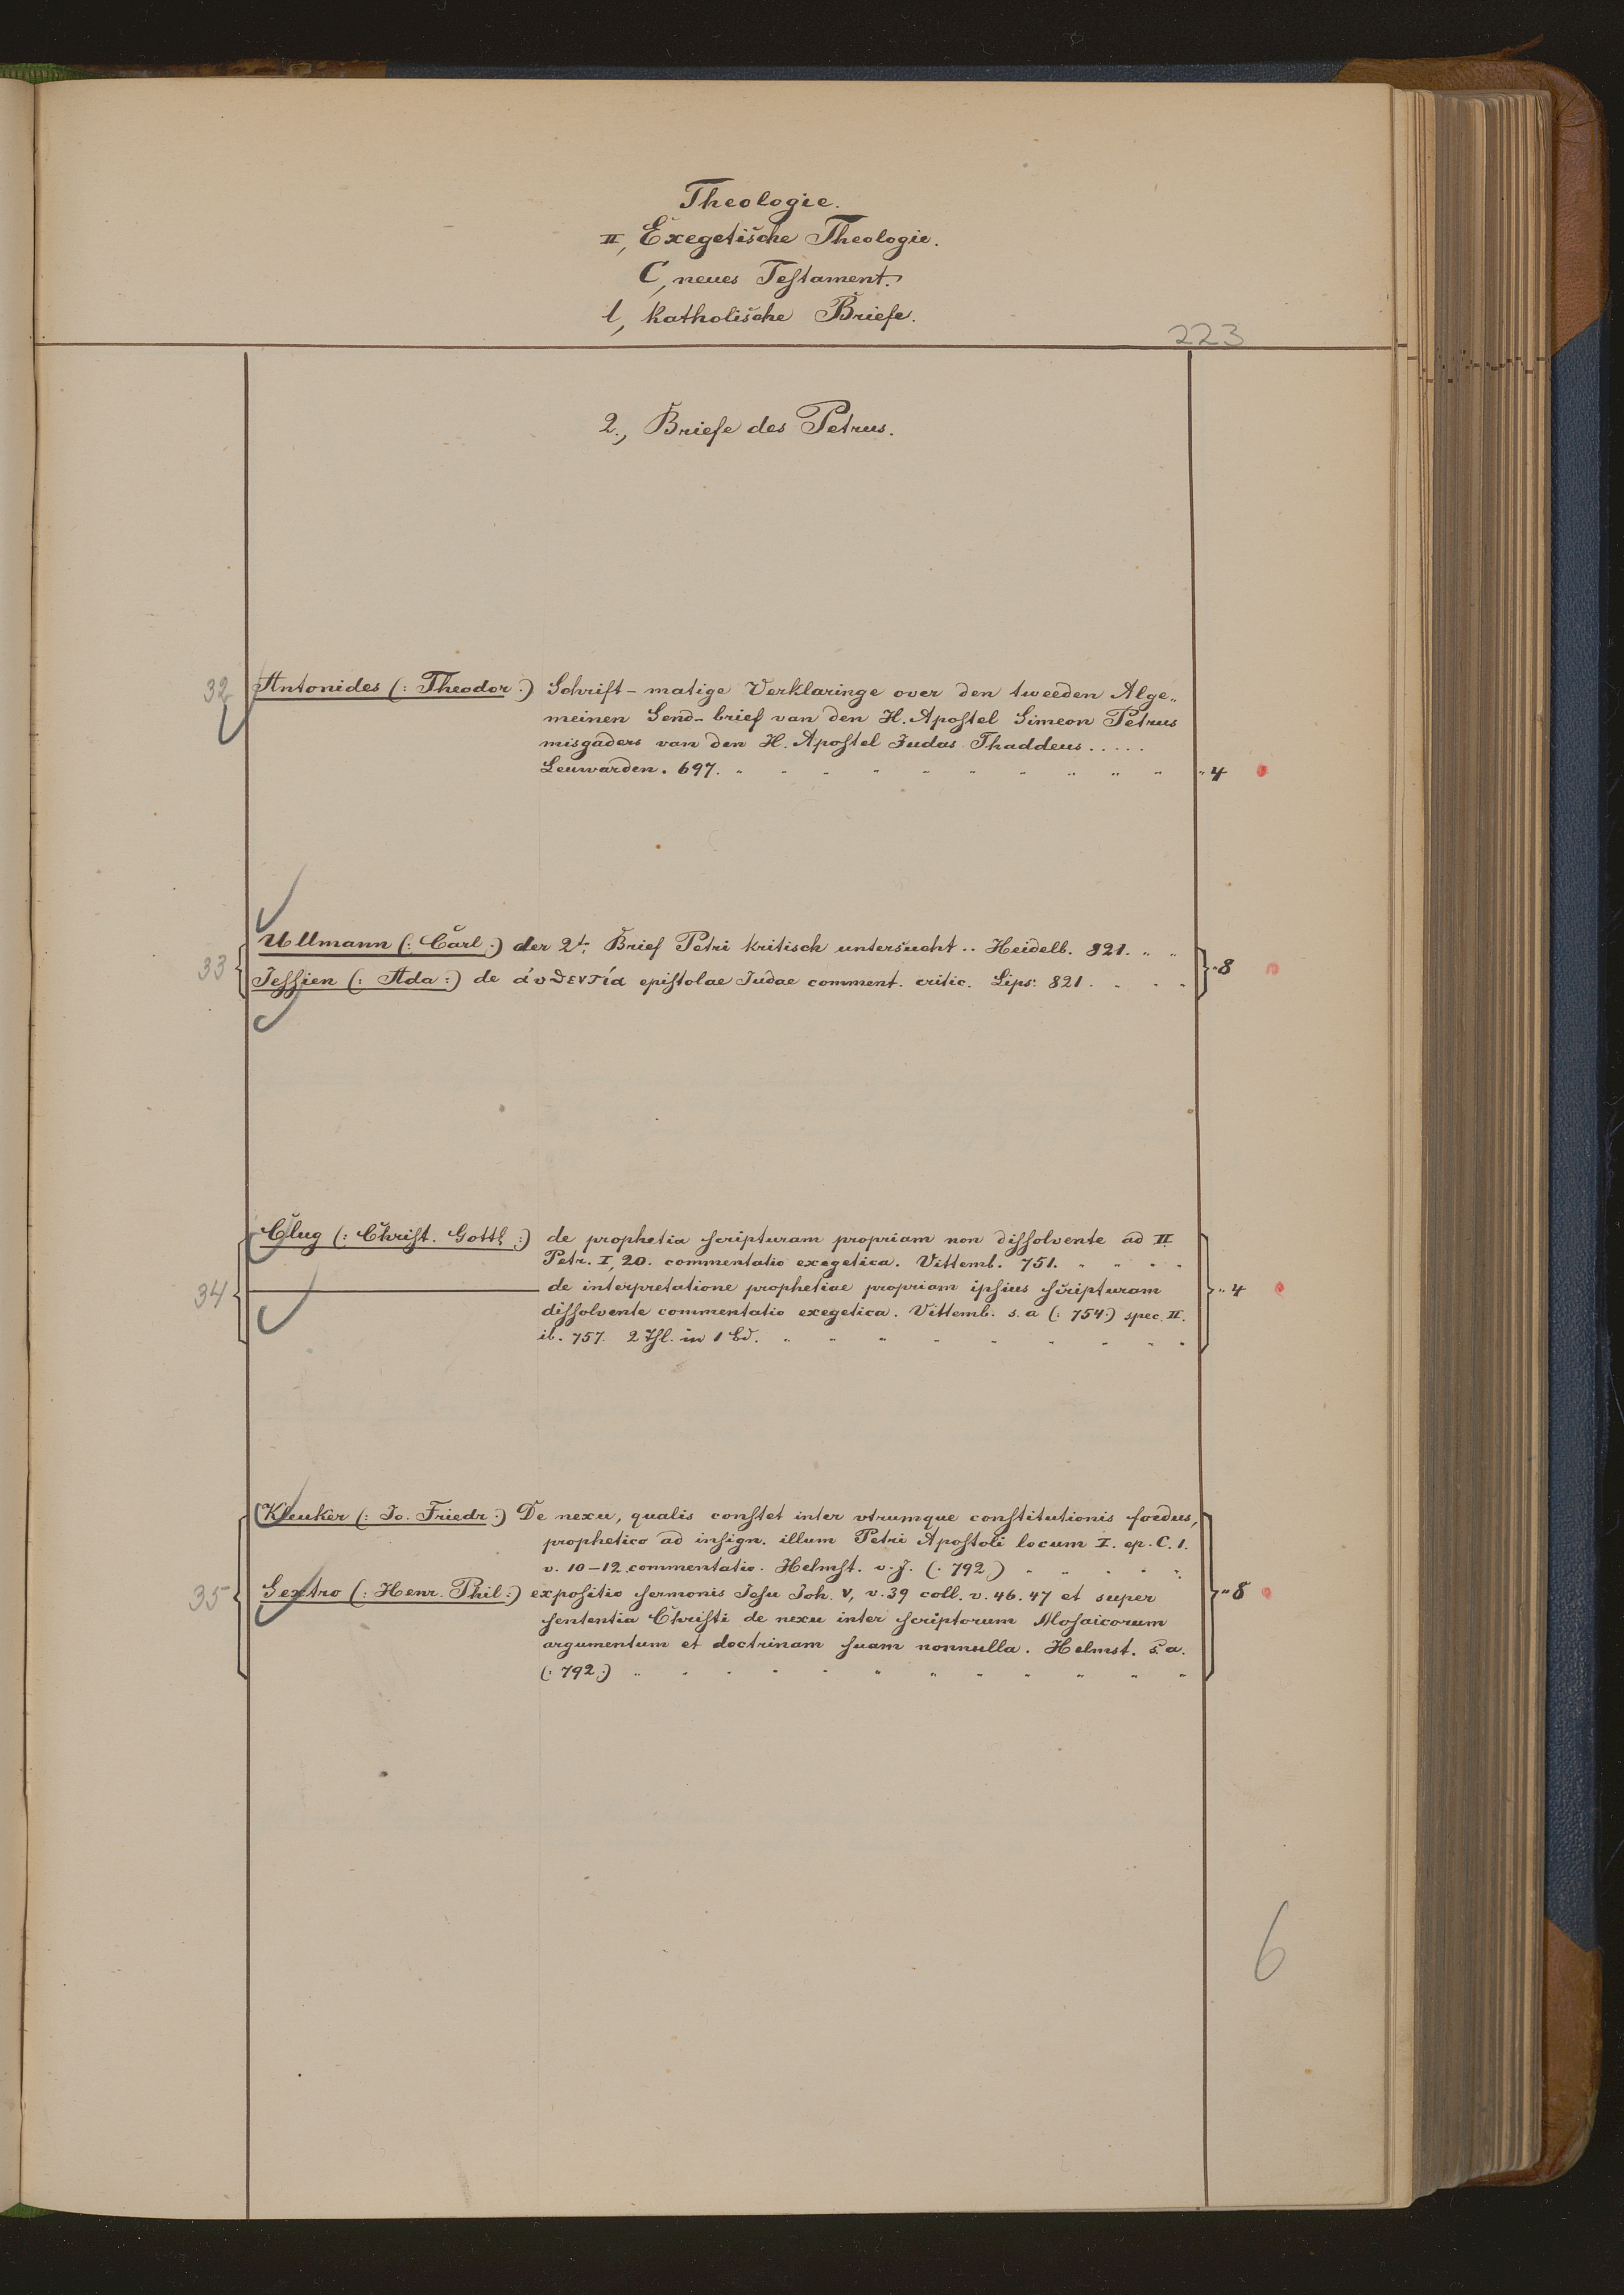 Theologie.
II, Exegetische Theologie.
C, neues Testament.
l, Katholische Briefe.
223
2., Briefe des Petrus.
32 Antonides (: Theodor :) Schrift-matige Verklaringe over den tweeden Alge„
meinen Send-brief van den H. Apostel Simeon Petrus
misgaders van den H. Apostel Judas Thaddeus .....
Leuwarden. 697. „ 4
Ullmann (: Carl :) der 2t. Brief Petri kritisch untersucht .. Heidelb. 821. „ „
33 „ 8
Jessien (: Ada :) de ἀυθεντία epistolae Judae comment. critic. Lips. 821.
Clug (: Christ. Gottl :) de prophetia scripturam propriam non dissolvente ad II
Petr. I, 20. commentatio exegetica. Vittemb. 751.
34 ——— de interpretatione prophetiae propriam ipsius scripturam „ 4
dissolvente commentatio exegetica. Vittemb. s. a (: 754:) spec. II.
ib. 757. 2 Thl. in 1 Bd.
Kleuker (: Jo. Friedr :) De nexu, qualis constet inter vtrumque constitutionis foedus,
prophetico ad insign. illum Petri Apostoli locum I. ep. C. 1.
v. 10-12 commentatio. Helmst. v. J. (: 792)
35 Sextro (: Henr. Phil :) expositio sermonis Jesu Joh. V, v. 39 coll. v. 46. 47 et super „ 8
sententia Christi de nexu inter scriptorum Mosaicorum
argumentum et doctrinam suam nonnulla. Helmst. s. a.
(: 792 :)
6